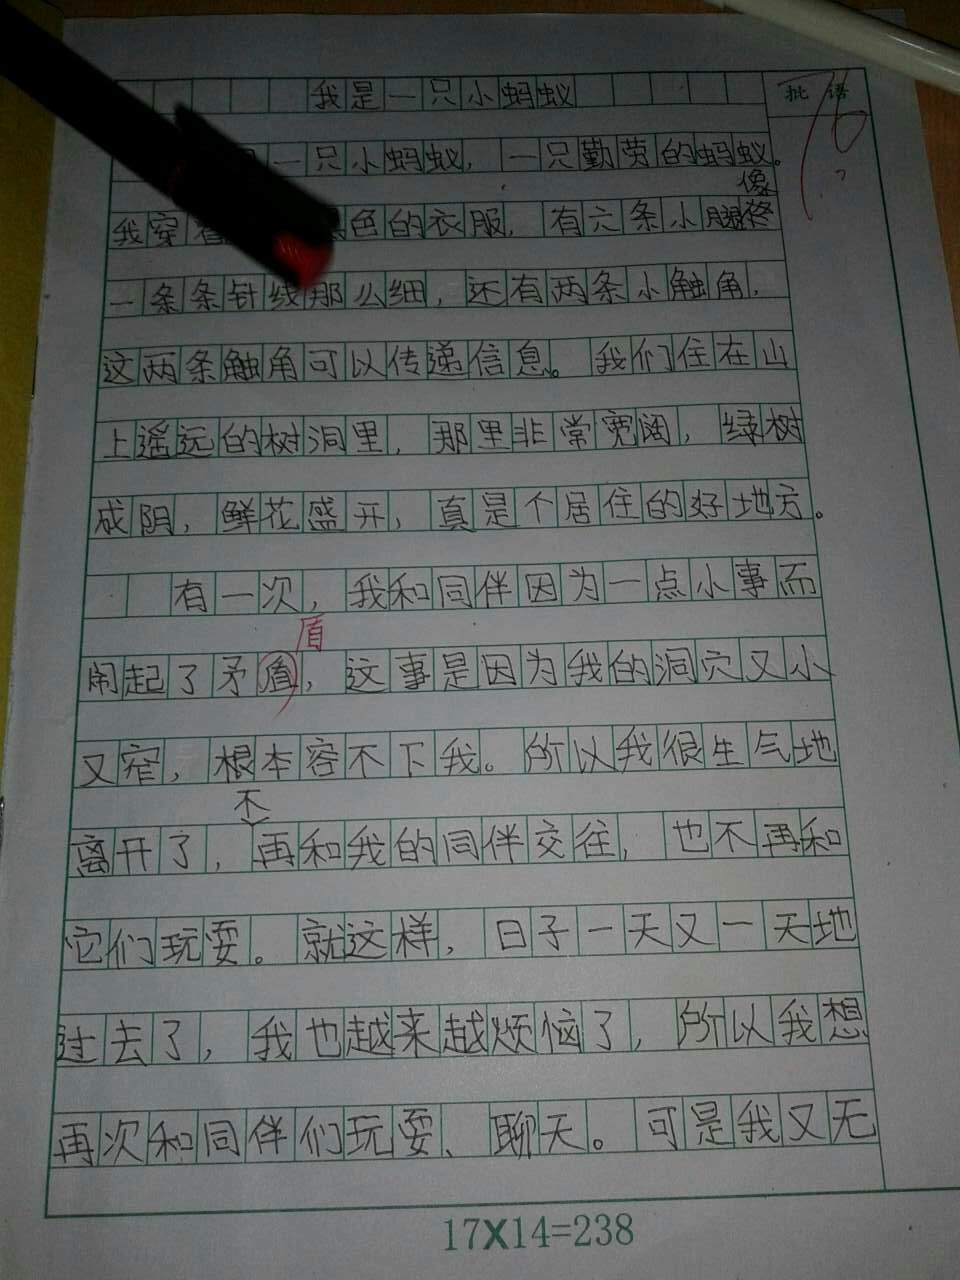 我是一只小蚂蚁
批语
76
一只小蚂蚁，一只勤劳的蚂蚁。
像
我穿着色的衣服，有六条小腿
一条条针线那么细，还有两条小触角，
这两条触角可以传递信息。我们住在山
上遥远的树洞里，那里非常宽阔，绿树
成阴，鲜花盛开，真是个居住的好地方。
有一次，我和同伴因为一点小事而
盾
闹起了矛盾，这事是因为我的洞穴又小
又窄，根本容不下我。所以我很生气地
不
离开了，再和我的同伴交往，也不再和
它们玩耍。就这样，日子一天又一天地
过去了，我也越来越烦恼了，所以我想
再次和同伴们玩耍、聊天。可是我又无
17X14=238